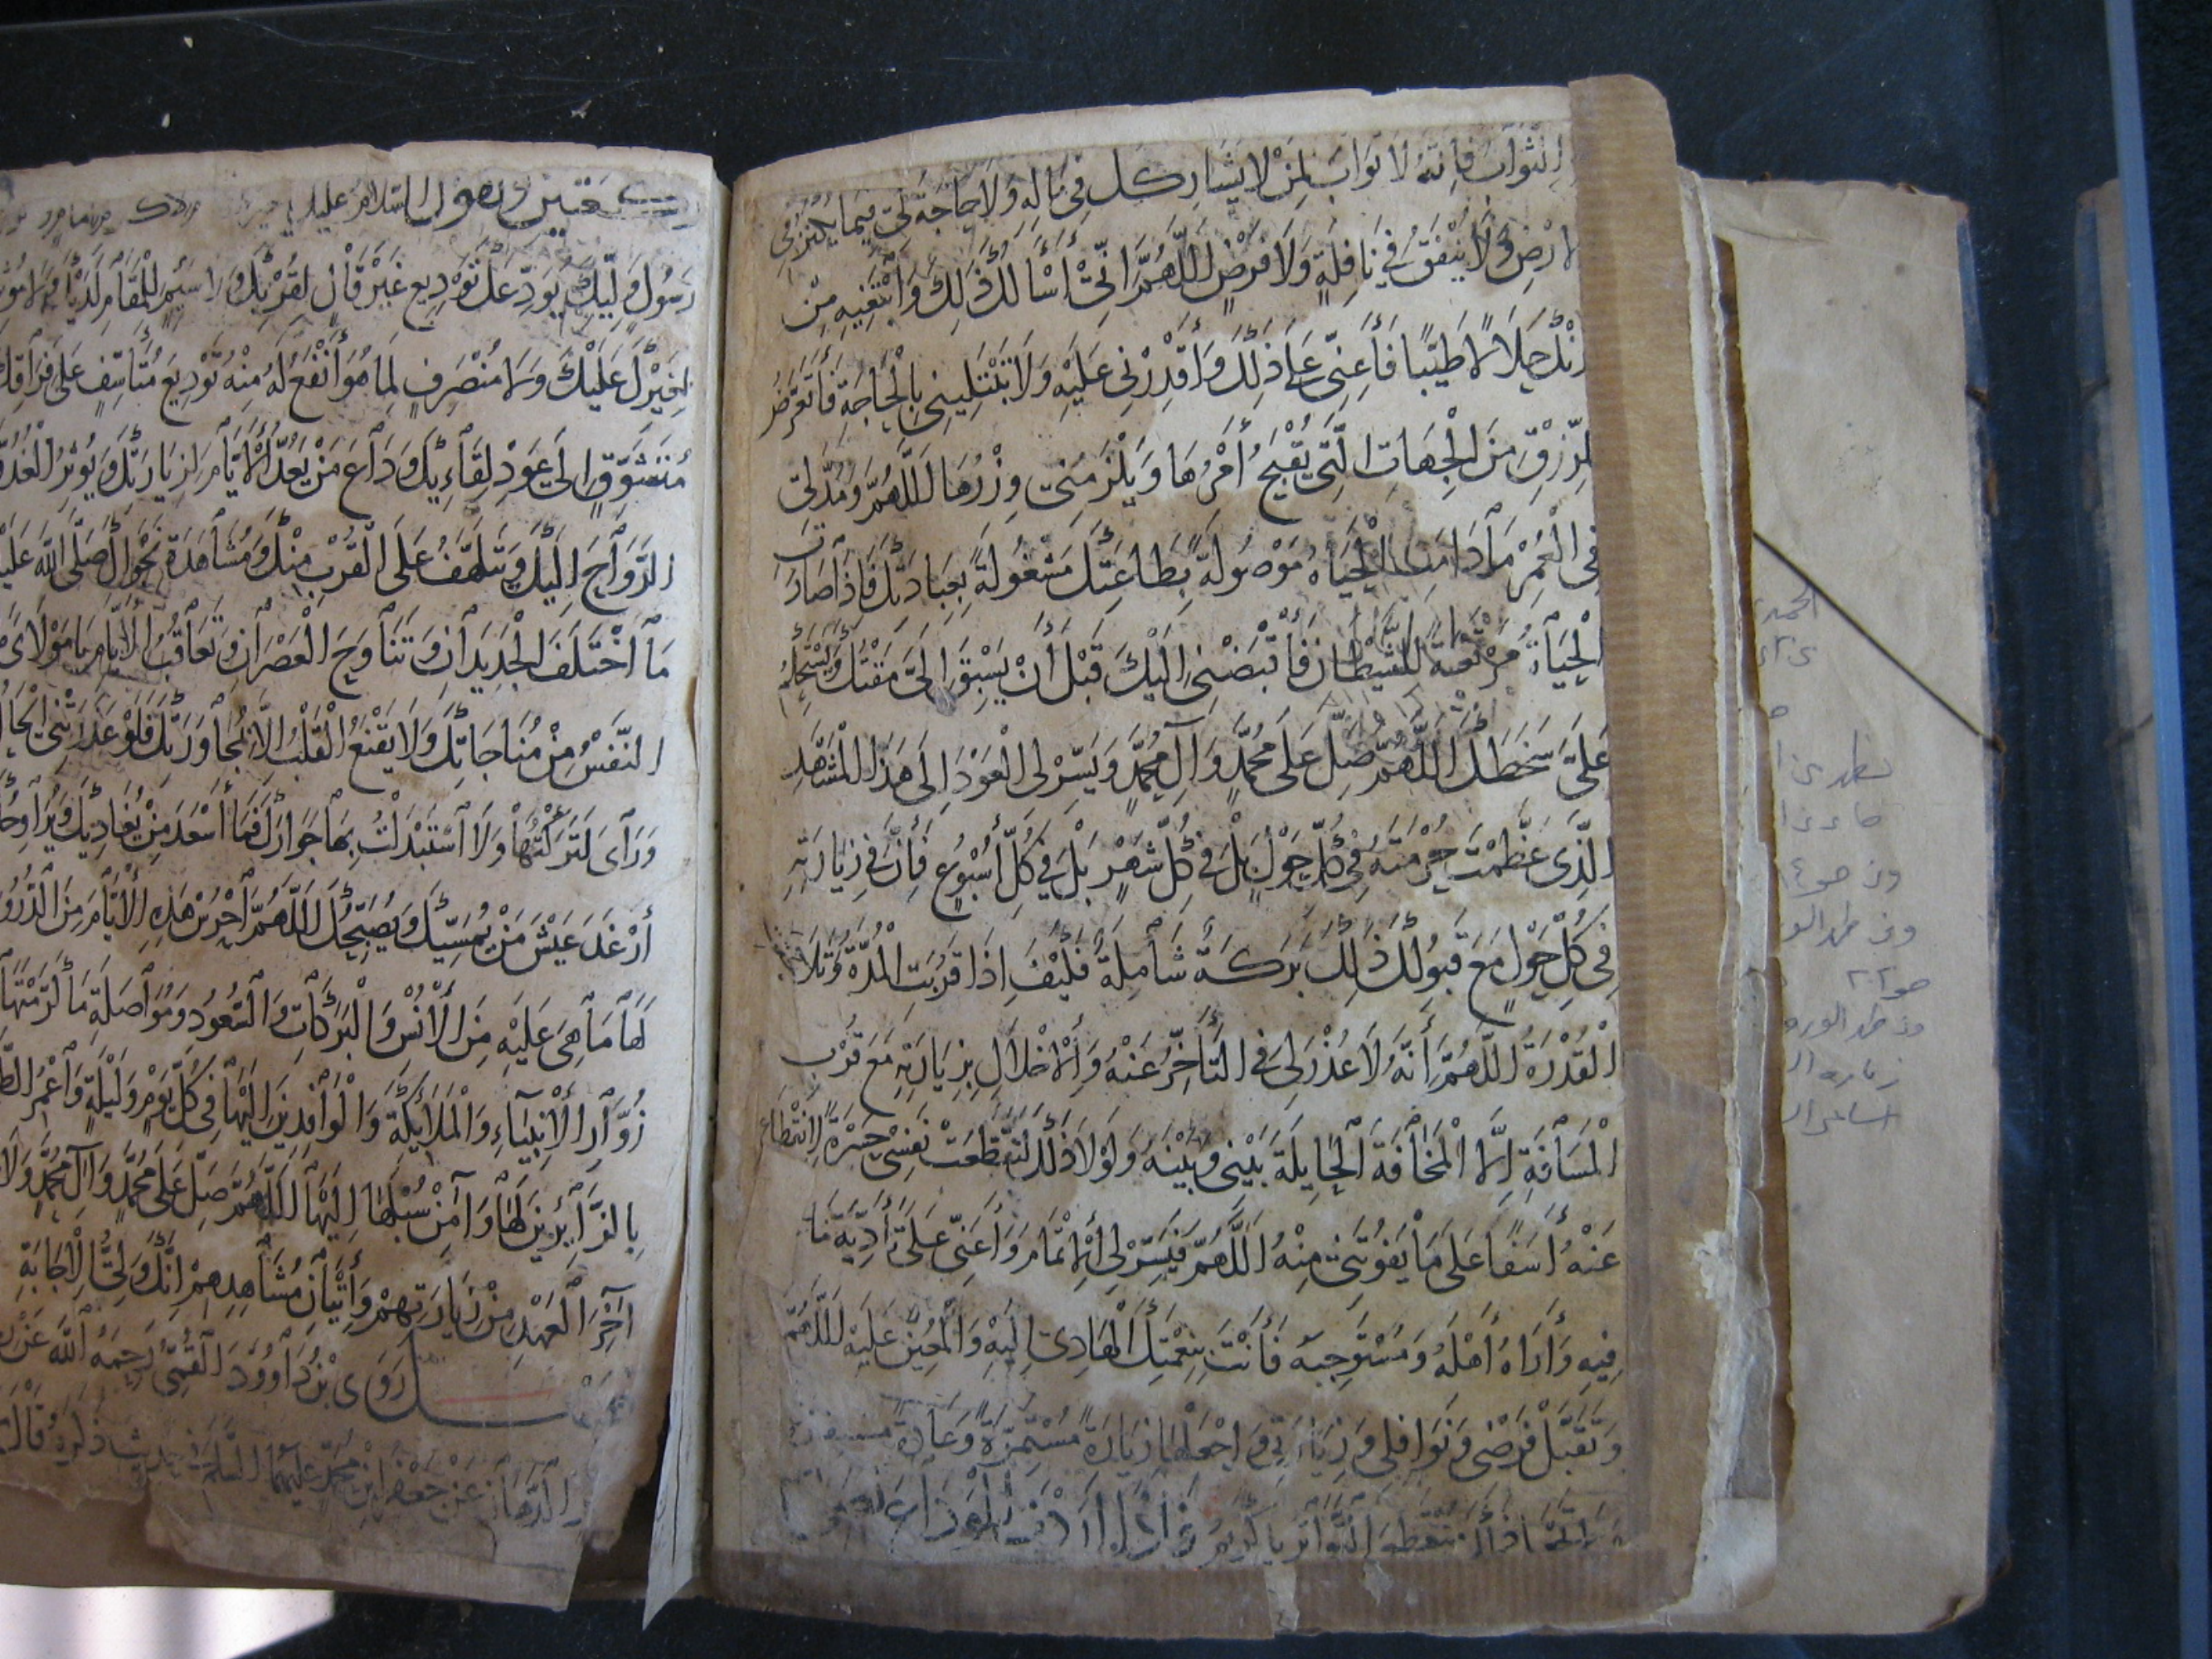 الثواب فإنه لا ثواب لمن لا يشاركك في ماله ولا حاجة لي فيما يكنز في
الارض ولا ينفق في نافلة ولا فرض اللهم اني أسألك ذلك وابتغيه من
لدنك حلالا طيبا فأعني على ذلك وأقدرني عليه ولا تبتليني بالحاجة فأتعرض
للرزق من الجهات التي يقبح أمرها ويلزمني وزرها اللهم ومد لي
في العمر ما دامت الحياة موصولة بطاعتك مشغولة بعبادتك فإذا صارت
الحياة مرتعة للشيطان فاقبضني اليك قبل أن يسبق الي مقتك ويستحكم
علي سخطك اللهم صل على محمد وآل محمد ويسر لي العود الى هذا المشهد
الذي عظمت حرمته في كل حول بل في كل شهر بل في كل أسبوع فإن في زيارته
في كل حول مع قبولك ذلك بركة شاملة فكيف اذا قربت المدة وتلاحقت
القدرة اللهم أنه لا عذر لي في التأخر عنه والاخلال بزيارته مع قرب
المسافة إلا المخافة الحايلة بيني وبينه ولولا ذلك لتقطعت نفسي حسرة لانقطاعي
عنه أسفا على ما يفوتني منه اللهم فيسر لي الاتمام وأعني على تأدية ما
فيه وأراه أهله ومستوجبه فأنت بنعمتك الهادي اليه والمعين عليه اللهم
وتقبل فرضي ونوافلي وزيارتي واجعلها زيارة مستمرة وعادة
السلام عليك يا
رسول وليك يودعك توديع غير قال لقربك ولا سئم للمقام لديك ولا مؤثر
لغيرك عليك ولا منصرف لما هو أنفع له منه توديع متأسف على فراقك
متشوق الى عود لقائك وداع من يعد الايام لزيارتك ويؤثر الغدو
الرواح اليك ويتلهف على القرب منك ومشاهدة نجواك صلى الله عليك
ما اختلف الجديدان وتناوح العصران وتعاقب الايام يا مولاي
النفس من مناجاتك ولا يقنع القلب الا بمجاورتك فلو عذرتني الحال
ورآى لتركتها ولا استبدلت بها جوارك فما أسعد من يغاديك ويراوحك
أرغد عيش من يمسيك ويصبحك اللهم احرس هذه الايام من الدروس
لها ما هي عليه من الأنس والبركات والسعود ومواصلة ما كرمتها
زوار الانبياء والملائكة والوافدين اليها في كل يوم وليلة واعمر الطريق
بالزائرين لها وآمن سبلها اليها اللهم صل على محمد وآل محمد ولا
آخر العهد من زيارتهم وإتيان مشاهدهم انك ولي الاجابة
روى بن داوود القمي رحمه الله عن
الدهان عن جعفر ابن محمد عليهما السلام في حديث ذكره قال